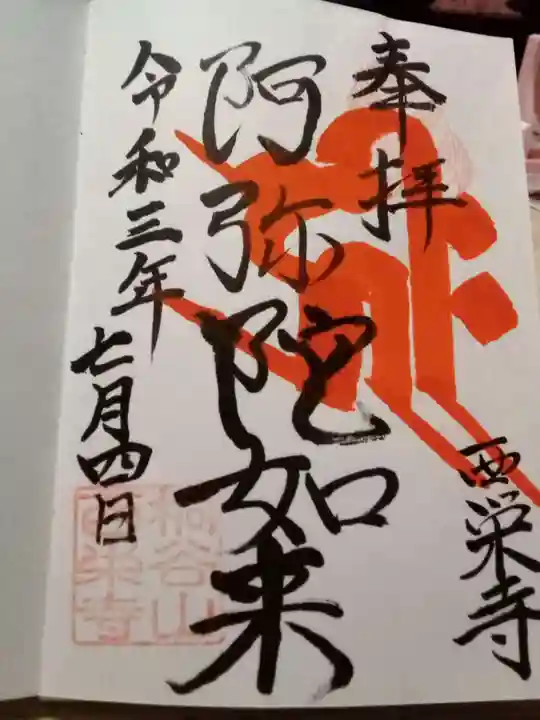 奉拝
阿弥陀如来
西栄寺
令和三年
七月四日
桐谷山
西栄寺